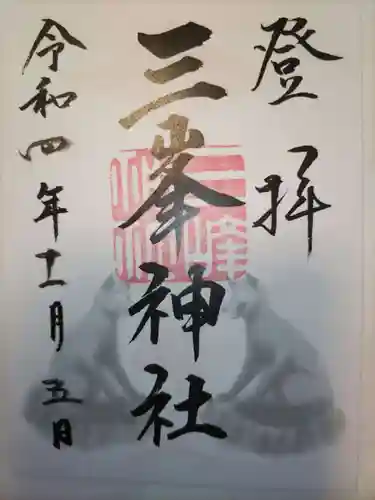 登拝
三峯神社
令和四年十一月五日